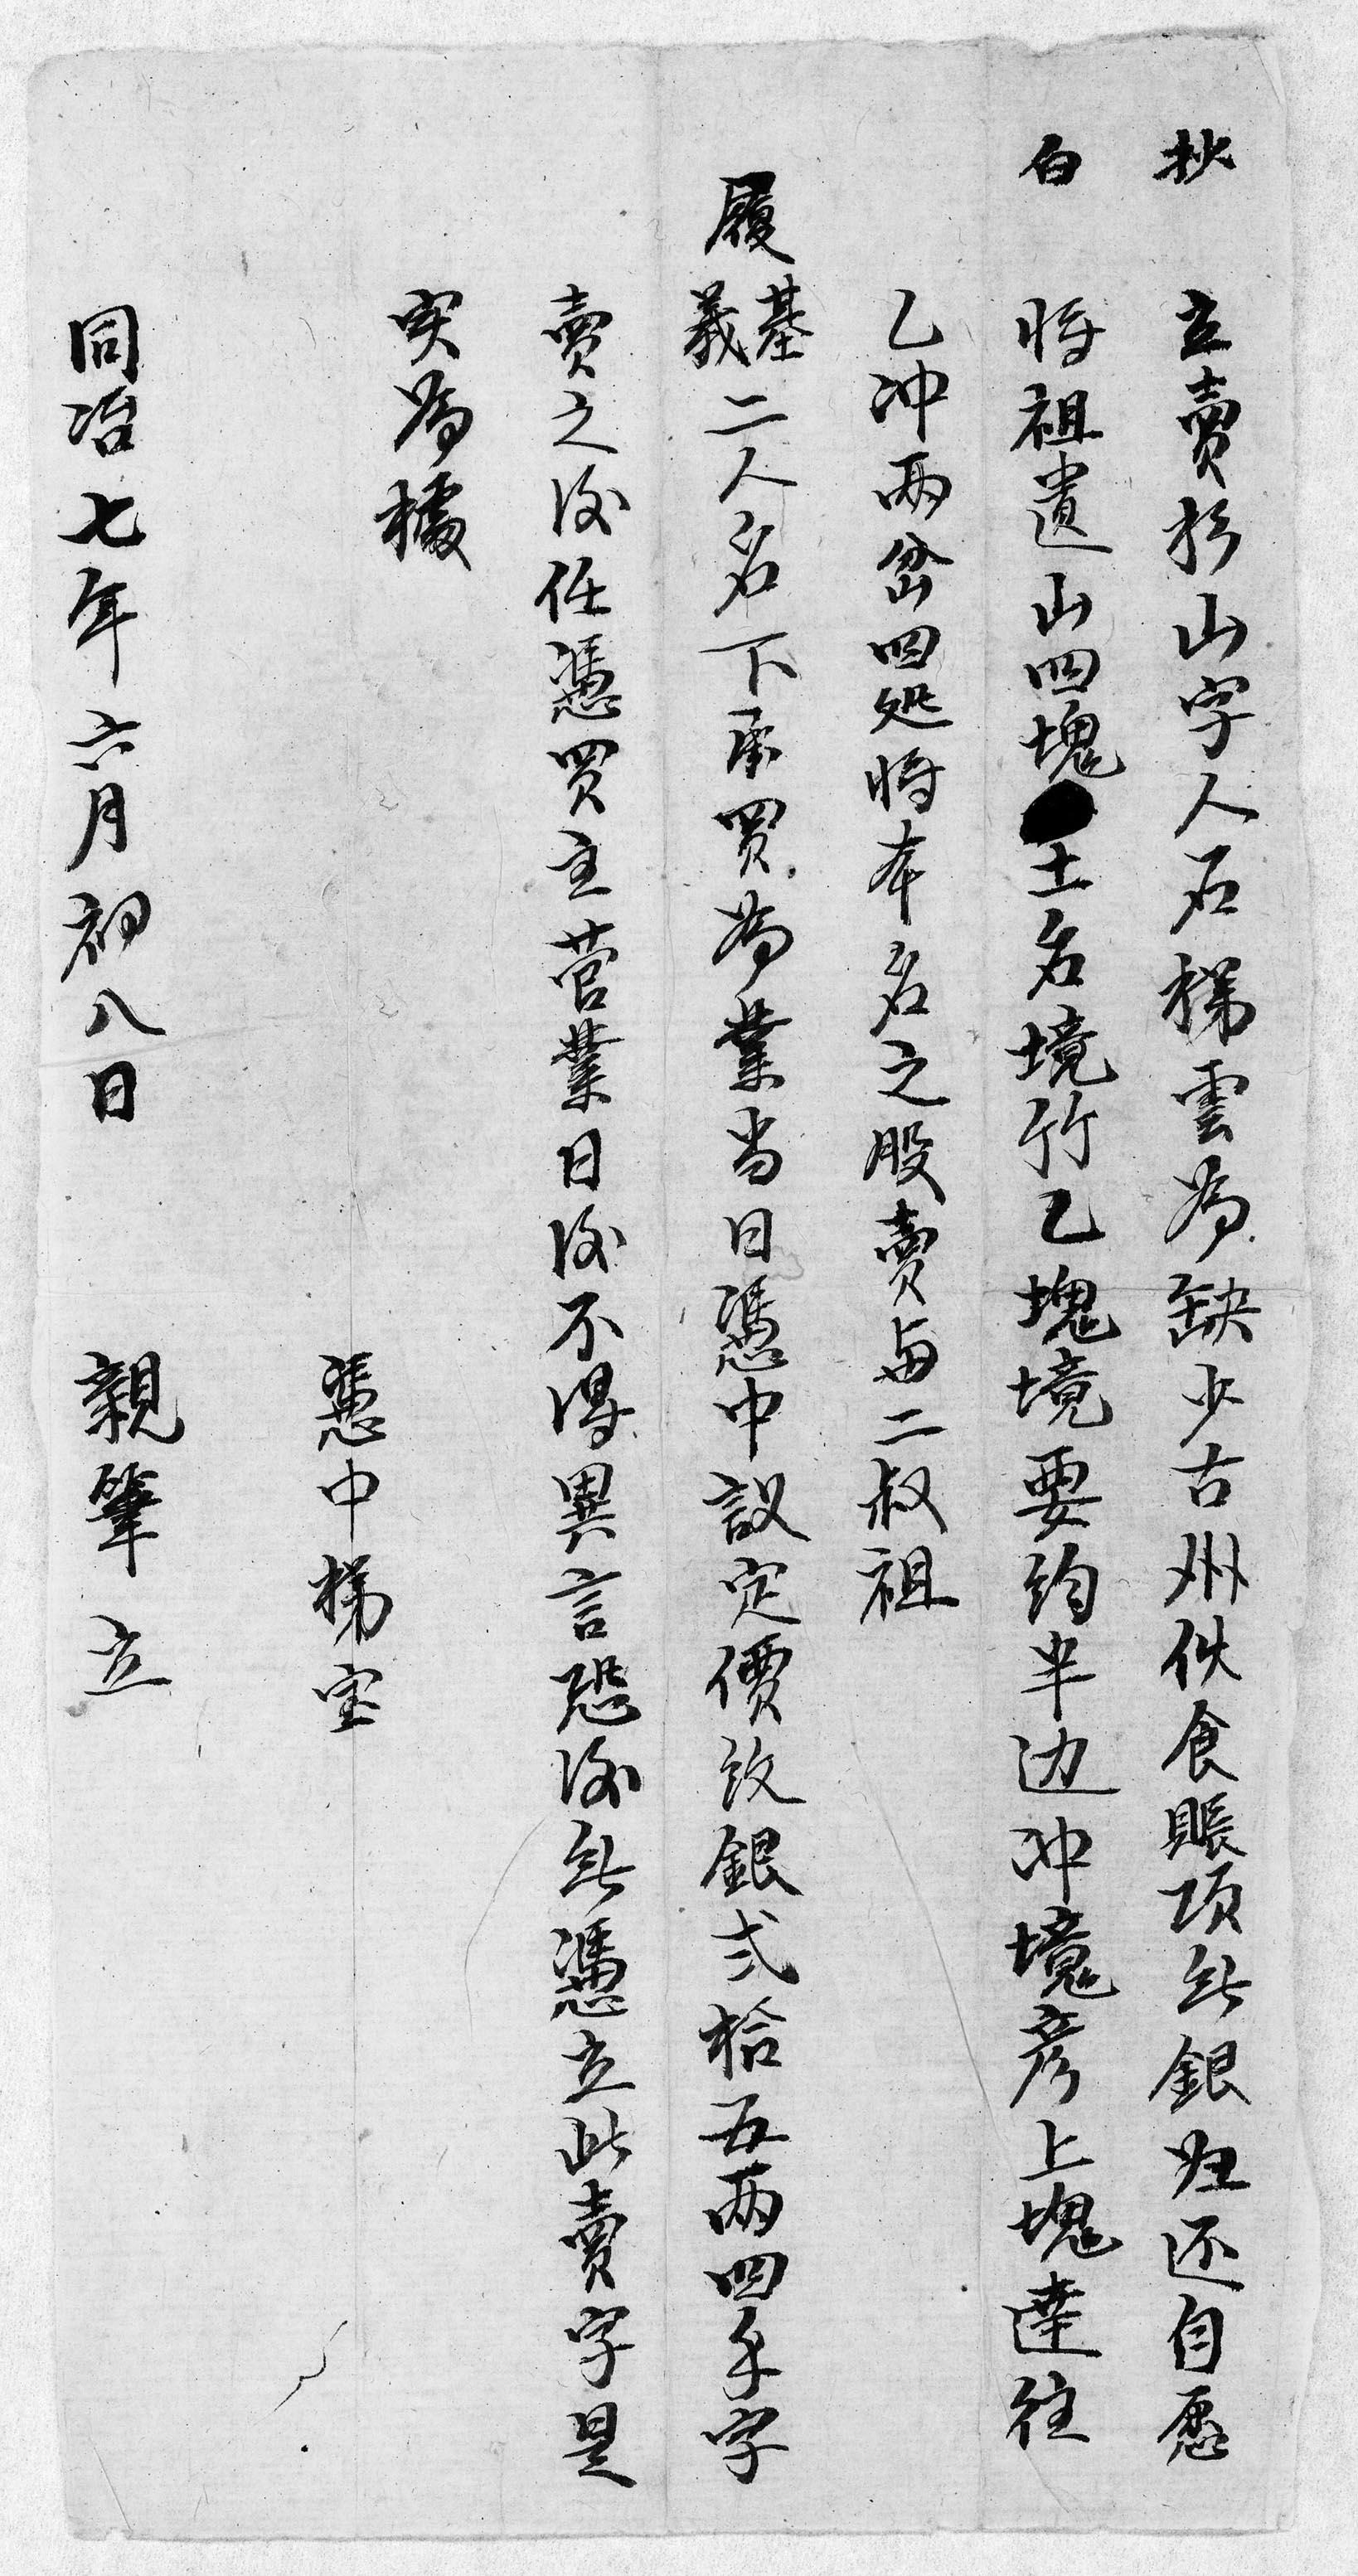 抄　立賣杉山字人石梯雲為缺少古州伙食賬項無銀归还自愿
白　將祖遺山四塊土名境竹乙塊境要约半边冲境彦上塊達往
乙冲兩岔四处將本名之股賣与二叔祖
履基義二人名下承買為業当日憑中議定價纹銀弍拾五两四千字
賣之後任憑買主管業日後不得異言恐後無憑立此賣字是
实為據
憑中梯宝
同治七年六月初八日　親筆立